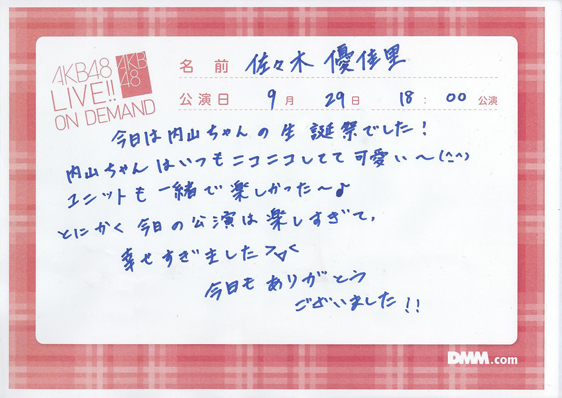 AKB48
LIVE!!
ON DEMAND
AKB
48
名前 佐々木 優佳里
公演日 9月 29日 18:00公演
今日は内山ちゃんの生誕祭でした!
内山ちゃんはいつもニコニコしてて可愛い〜(^^)
ユニットも一緒で楽しかった〜♪
とにかく今日の公演は楽しすぎて、
幸せすぎました>▽<
今日もありがとう
ございました!!
DMM.com